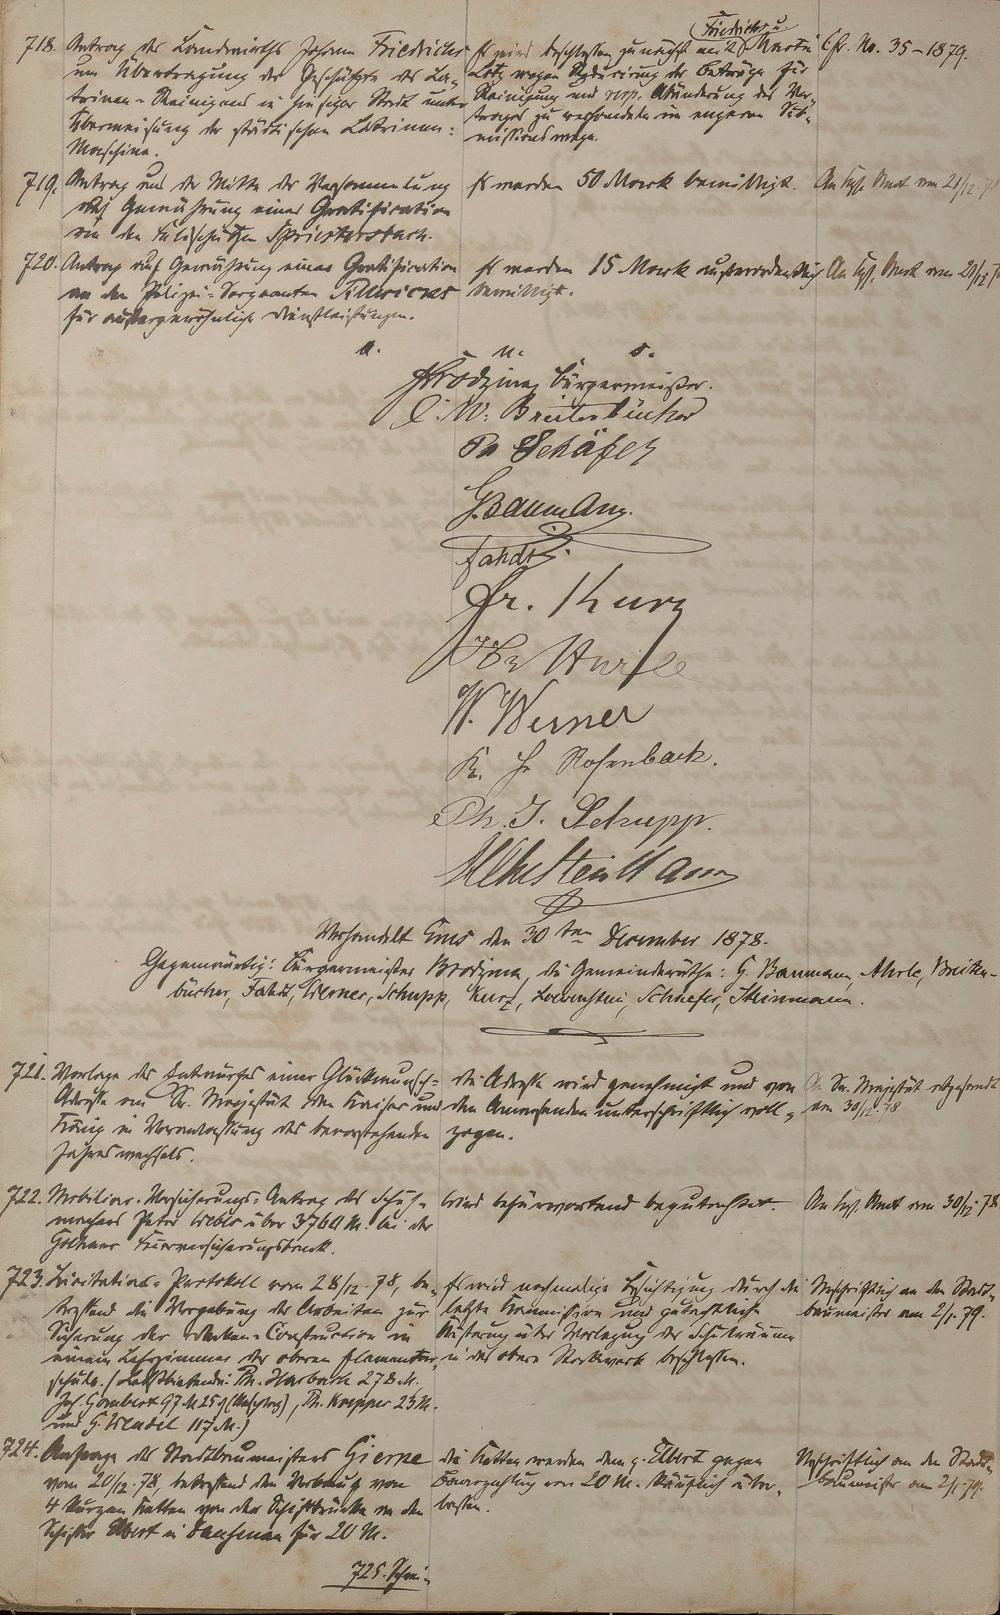 Friedrichs u.
718. Antrag des Landwirths Johann Friedrichs
um Übertragung der Geschäfte des La-
trinen-Reinigens in hiesiger Stadt unter
Überweisung der städtischen Latrinen-
Maschine.
Es wird beschlossen zunächst mit
wegen Reducirung der Beträge für
Reinigung und resp. Abänderung des Ver-
trages zu verhandeln im engeren Sub-
missionswege.
Cfr. No. 35-1879.
719. Antrag aus der Mitte der Versammlung
auf Gewährung einer Gratification
an den Feldschützen Spriestersbach.
Es werden 50 Mark bewilligt.
An Kgl. Amt am 21/12. 78
720. Antrag auf Gewährung einer Gratification
an den Polizei-Sergeanten
für außergewöhnliche Dienstleistungen.
Es werden 15 Mark außerordentlich
bewilligt.
An Kgl. Amt am 21/12. 78
a. u. s.
Brodzina, Bürgermeister.
C. W. Breitenbücher
Ph Schäfer
G. Baumann.
Fahdt.
Fr. Kurz
W. Werner
K. H. Rosenbach.
Ph. J. Schupp.
Steinmann
Verhandelt Ems den 30ten December 1878.
Gegenwärtig: Bürgermeister Brodzina, die Gemeinderäthe: G. Baumann, Ahrle, Breiten-
bücher, Fahdt, Werner, Schupp, Kurz, Loewenstein, Schaefer, Steinmann.
721. Vorlage des Entwurfes einer Glückwunsch-
Adresse an Sr. Majestät den Kaiser und
König in Veranlassung des bevorstehenden
Jahreswechsels.
Die Adresse wird genehmigt und von
den Anwesenden unterschriftlich voll-
zogen.
An Se. Majestät abgesandt
am 30/12. 78
722. Mobiliar-Versicherungs-Antrag des Schuh-
machers Peter Weber über 3760 M. bei der
Gothaer Feuerversicherungsbank.
Wird befürwortend begutachtet.
An Kgl. Amt am 30/12 78
723. Licitations-Protokoll vom 28/12. 78, be-
treffend die Vergebung der Arbeiten zur
Sicherung der Balken-Construction in
einem Lehrzimmer der oberen Elementar-
schule. (Letztbietende: Ph. Harbach 278 M.
Jos. Gombert 97 M 25 , Ph. Knepper 23 M.
und G. Wendel 117 M.)
Es wird nochmalige Besichtigung durch die
letzte Commission und gutachtliche
Äußerung über Verlegung der Schulräume
in das obere Stockwerk beschlossen.
Abschriftlich an den Stadt-
baumeister am 2/1. 79.
724. Anfrage des Stadtbaumeisters Gierne
vom 20/12. 78, betreffend den Verkauf von
4 kurzen Ketten von der Schiffbrücke an den
Schiffer Elbert in Dausenau für 20 M.
Die Ketten werden dem p. Elbert gegen
Baarzahlung von 20 M. käuflich über-
lassen.
Abschriftlich an den Stadt-
baumeister am 2/1. 79.
725. Schrei-